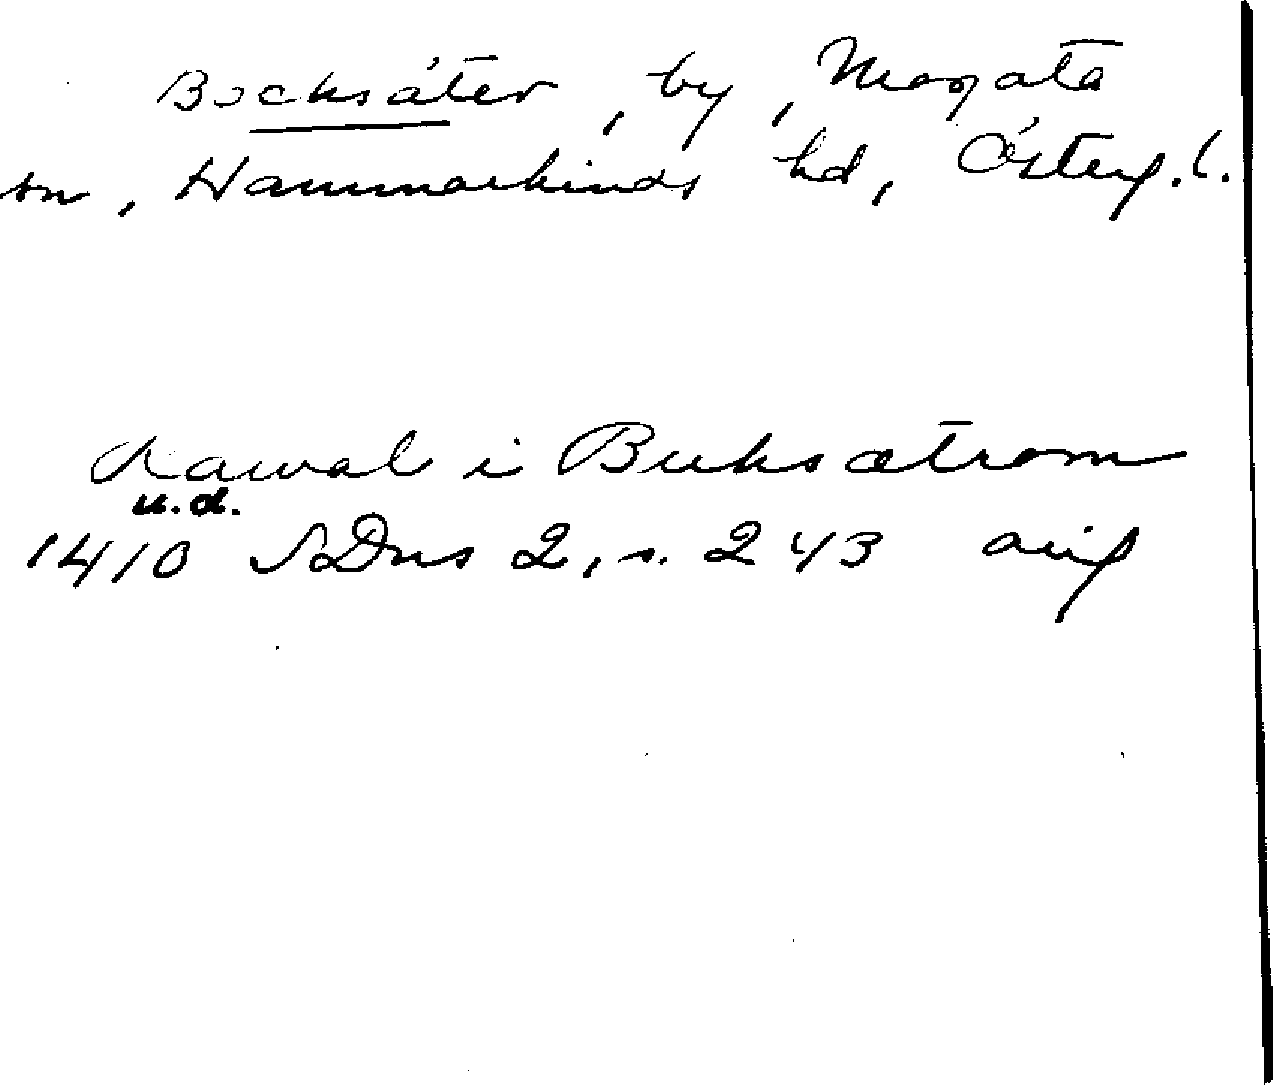 Bocksäter, by, Mogata
sn, Hammarkinds hd, Österg. l.
Kawal i Buksætrom
u.d.
1410 SDns 2, s. 243 avsk